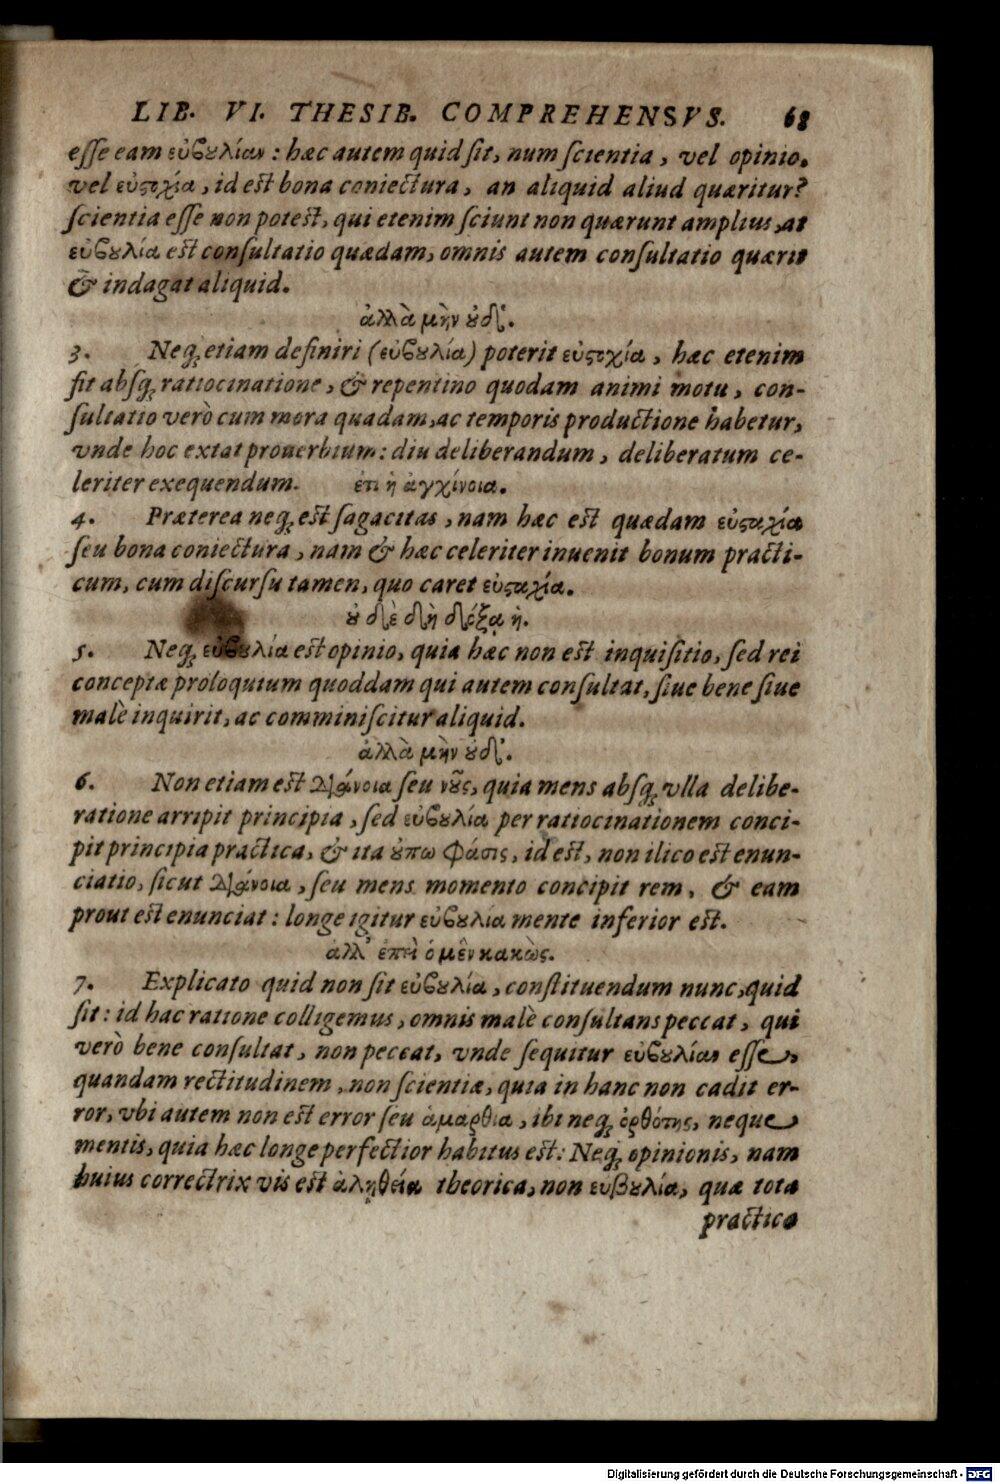 LIB. VI. THESIB. COMPREHENSVS. 68
eſſe eam εὐβουλίαν : hæc autem quid ſit, num ſcientia, vel opinio,
vel εὐστοχία, id est bona coniectura, an aliquid aliud quæritur?
ſcientia eſſe non potest, qui etenim ſciunt non quærunt amplius, at
εὐβουλία est conſultatio quædam, omnis autem conſultatio quærit
& indagat aliquid.
ἀλλὰ μὴν οὐδ'.
3. Neq; etiam definiri (εὐβουλία) poterit εὐστοχία, hæc etenim
fit abſq; ratiocinatione, & repentino quodam animi motu, con-
ſultatio verò cum mora quadam, ac temporis productione habetur,
vnde hoc extat prouerbium: diu deliberandum, deliberatum ce-
leriter exequendum. ἐπι ἡ ἀγχίνοια.
4. Præterea neq; est ſagacitas, nam hæc est quædam εὐστοχία
ſeu bona coniectura, nam & hæc celeriter inuenit bonum practi-
cum, cum diſcurſu tamen, quo caret εὐστοχία.
οὐδὲ δὴ δόξα ἡ.
5. Neq; εὐβουλία est opinio, quia hæc non est inquiſitio, ſed rei
conceptæ proloquium quoddam qui autem conſultat, ſiue bene ſiue
malè inquirit, ac comminiſcitur aliquid.
ἀλλὰ μὴν οὐδ'.
6. Non etiam est διάνοια ſeu νοῦς, quia mens abſq; vlla delibe-
ratione arripit principia, ſed εὐβουλία per ratiocinationem conci-
pit principia practica, & ita οὐπω φάσις, id est, non ilico est enun-
ciatio, ſicut διάνοια, ſeu mens momento concipit rem, & eam
prout est enunciat : longe igitur εὐβουλία mente inferior est.
ἀλλ' ἐπεὶ ὁ μὲν κακῶς.
7. Explicato quid non ſit εὐβουλία, conſtituendum nunc, quid
ſit : id hac ratione colligemus, omnis malè conſultans peccat, qui
verò bene conſultat, non peccat, vnde ſequitur εὐβουλίαν eſſe,
quandam rectitudinem, non ſcientiæ, quia in hanc non cadit er-
ror, vbi autem non est error ſeu ἁμαρθια, ibi neq; ὀρθότης, neque
mentis, quia hæc longe perfectior habitus est: Neq; opinionis, nam
huius correctrix vis est ἀληθεία theorica, non ευβουλία, quæ tota
practica
Digitalisierung gefördert durch die Deutsche Forschungsgemeinschaft - DFG